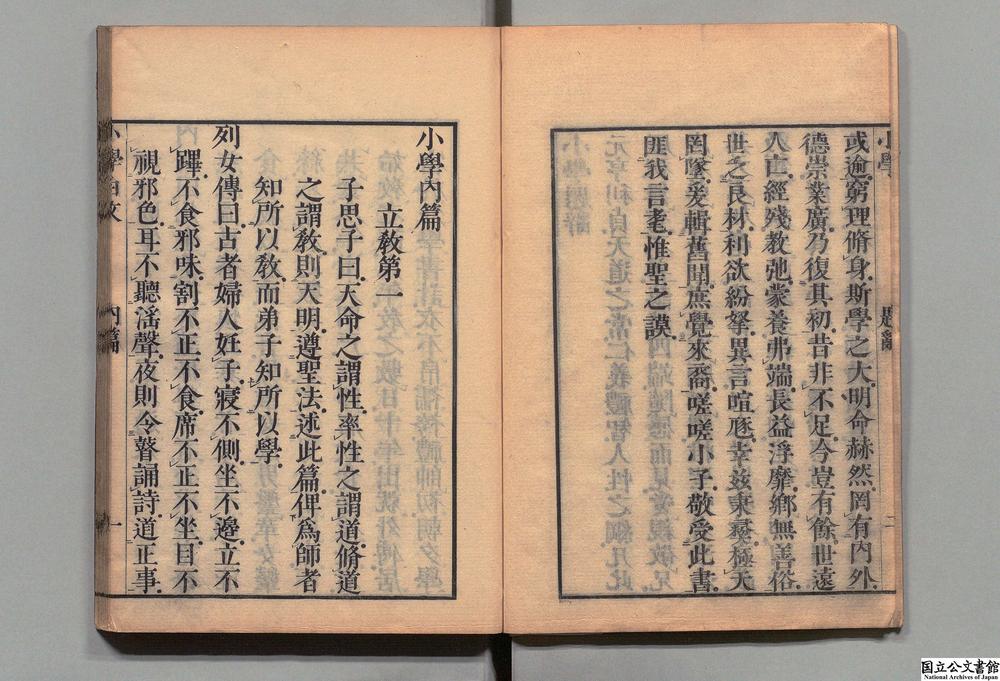 或逾窮理脩身斯學之大明命赫然罔有內外
德崇業廣乃復其初昔非不足今豈有餘世遠
人亡經殘教弛蒙養弗端長益浮靡鄉無善俗
世乏良材利欲紛拏異言喧豗幸玆秉彝極天
罔墜爰輯舊聞庶覺來裔嗟嗟小子敬受此書
匪我言耄惟聖之謨
小學內篇
立敎第一
子思子曰天命之謂性率性之謂道脩道
之謂敎則天明遵聖法述此篇俾爲師者
知所以敎而弟子知所以學
列女傳曰古者婦人妊子寢不側坐不邊立不
蹕不食邪味割不正不食席不正不坐目不
視邪色耳不聽淫聲夜則令瞽誦詩道正事
小學白文
內篇
一
題辭
二
国立公文書館
National Archives of Japan